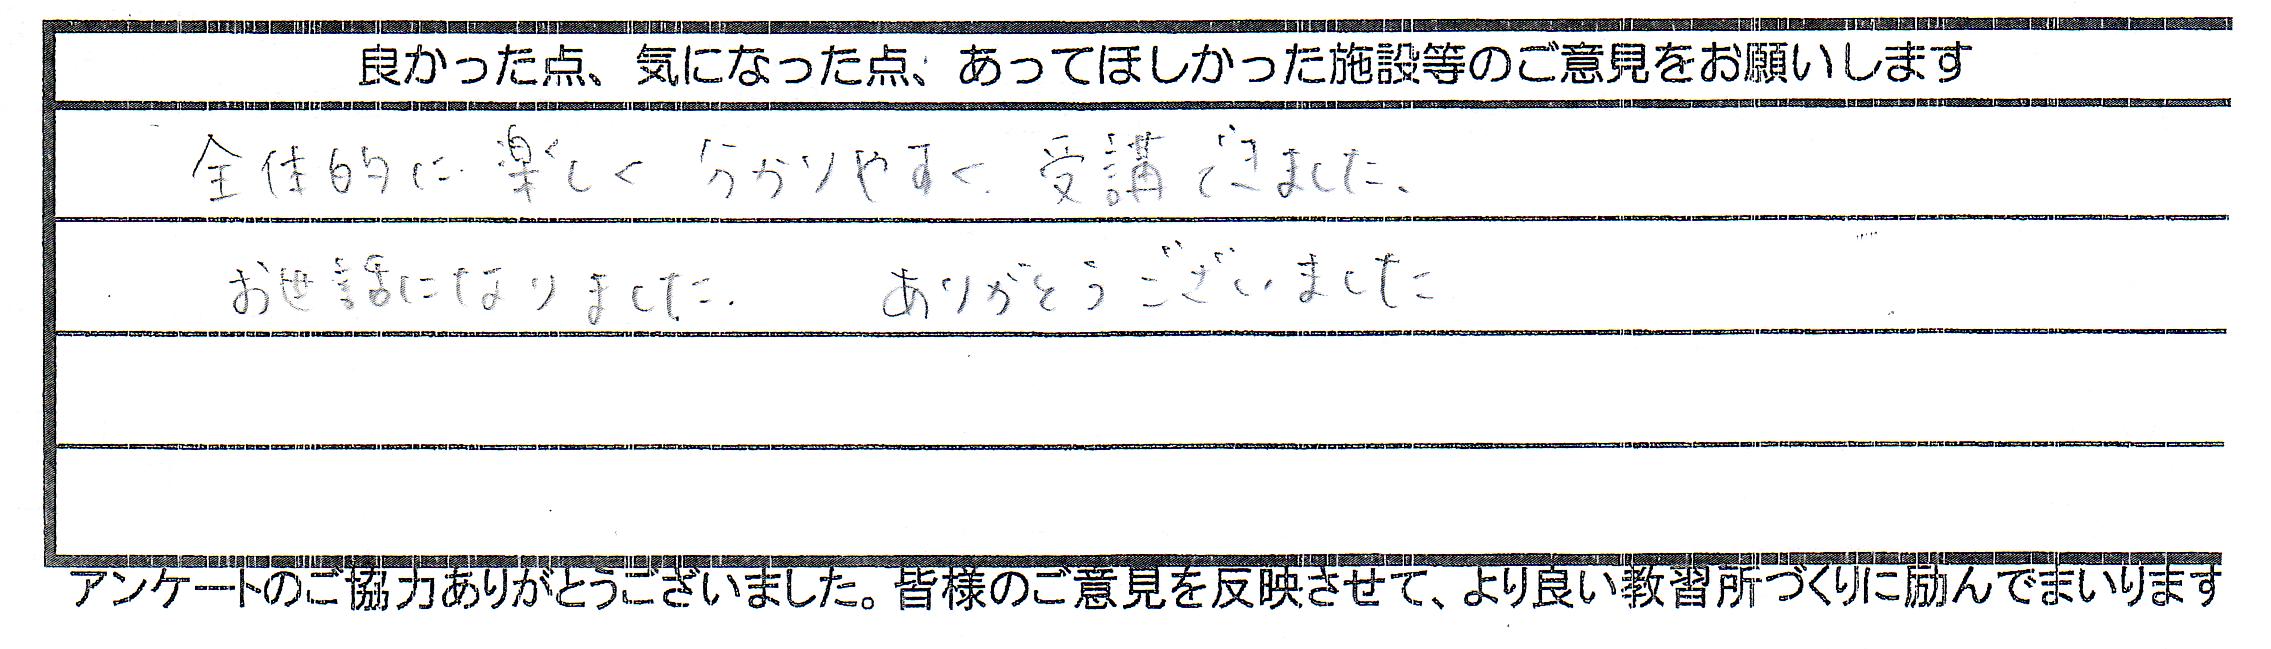 良かった点、気になった点、あってほしかった施設等のご意見をお願いします
全体的に楽しく分かりやすく受講できました、
お世話になりました. ありがとうございました
アンケートのご協力ありがとうございました。皆様のご意見を反映させて、より良い教習所づくりに励んでまいります